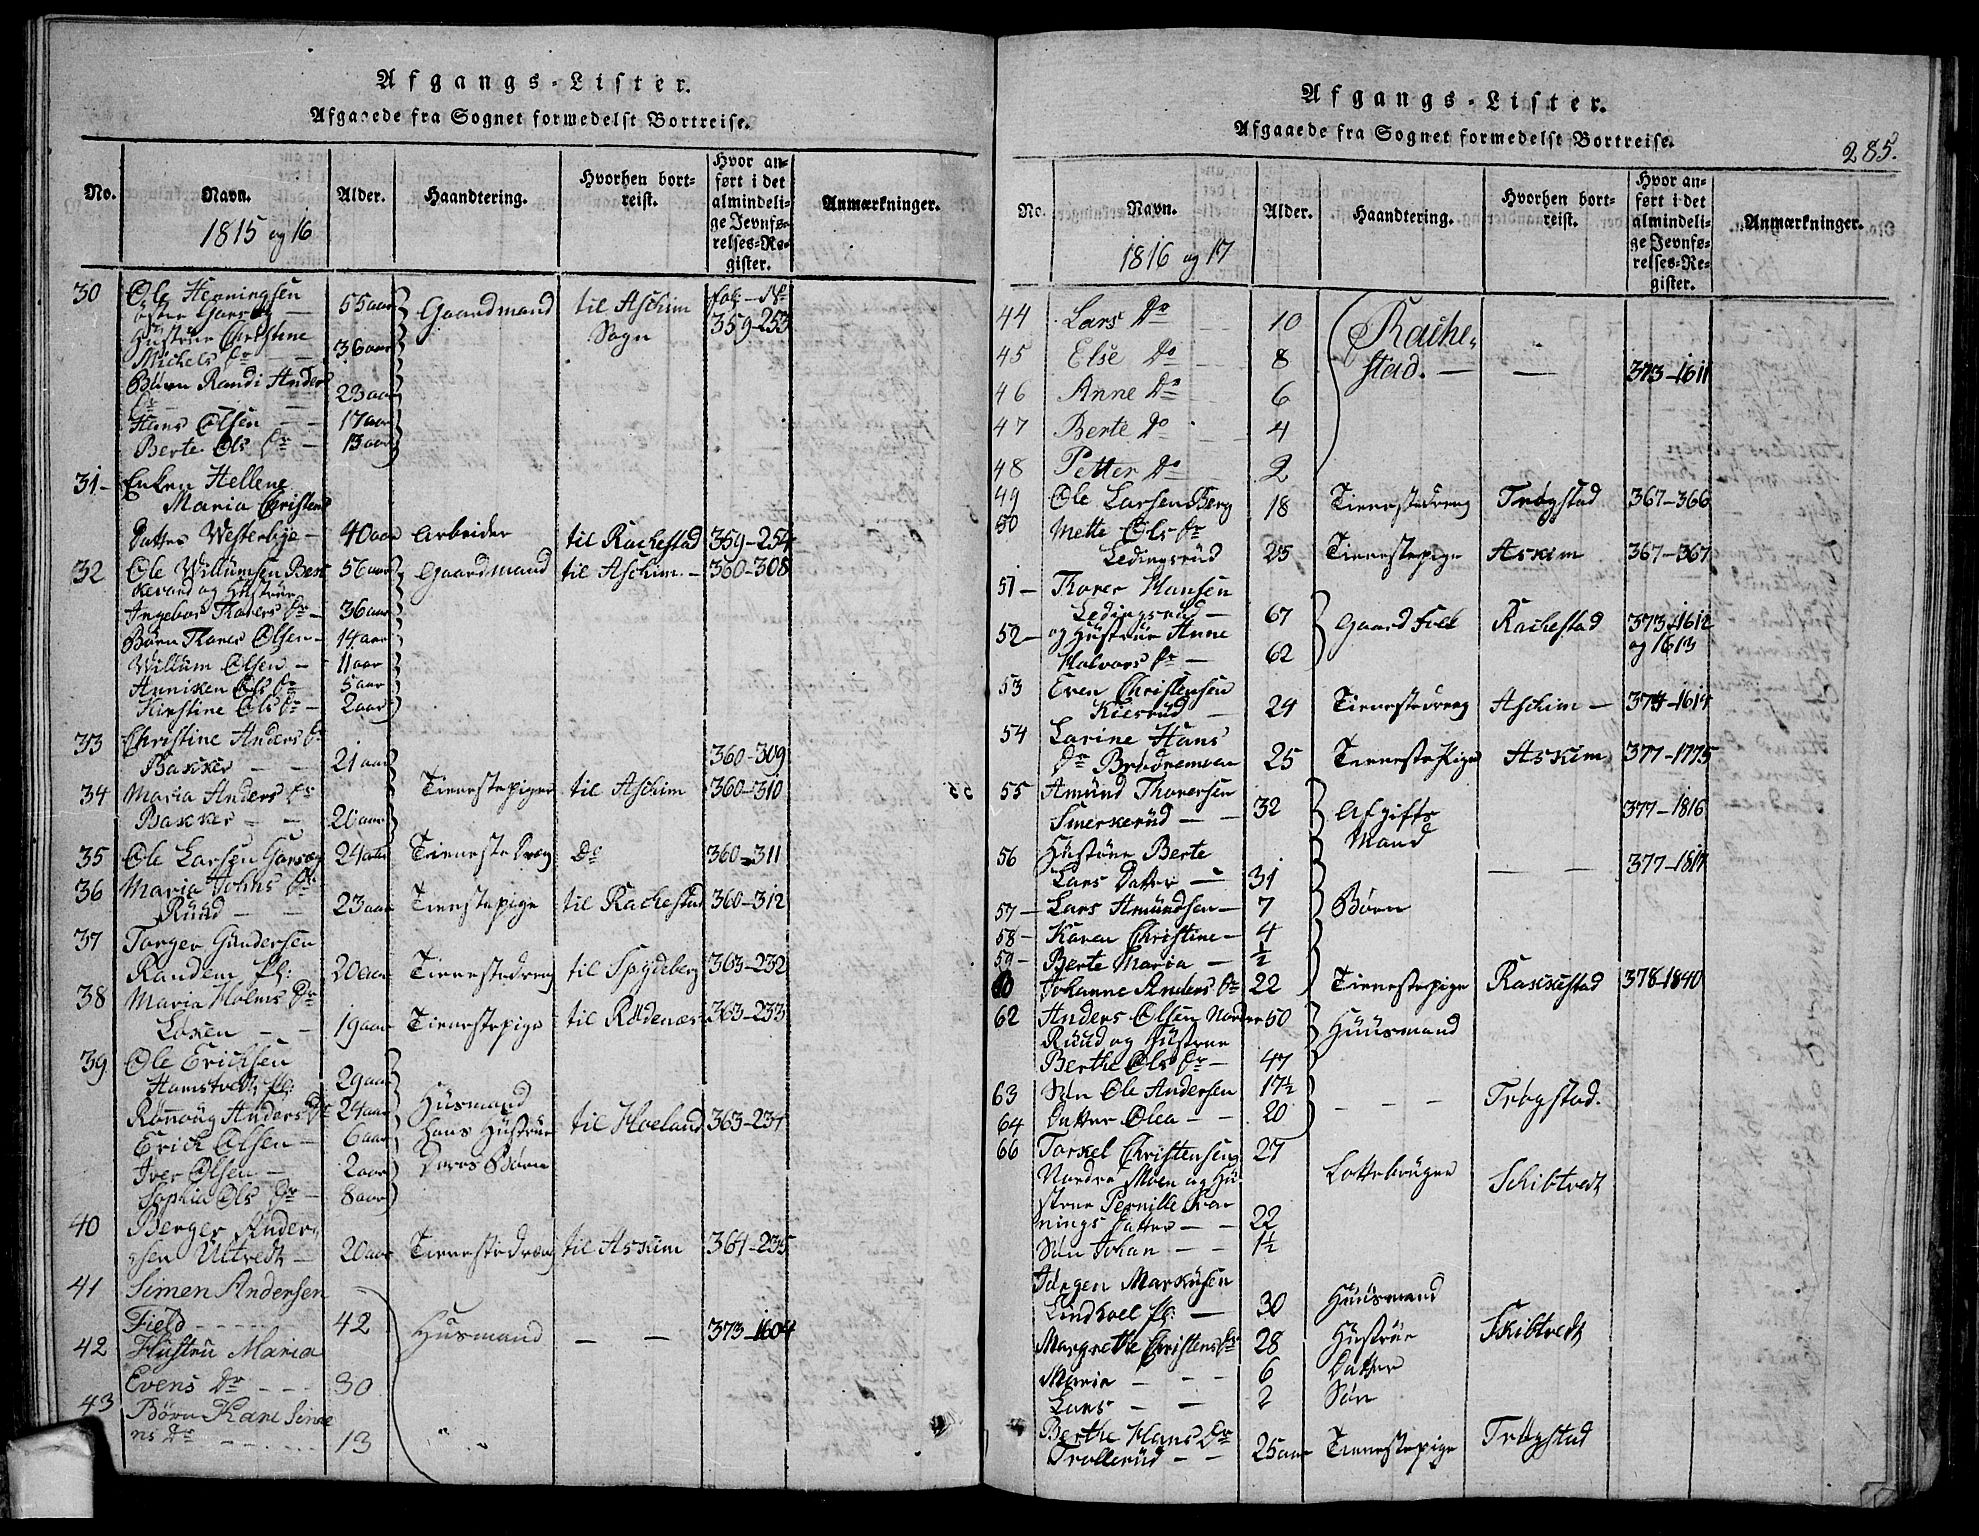 Afgangs-Lister.
Afgaaede fra Sognet formedelst Bortreise.
No. Navn. Alder. Haandtering. Hvorhen bortreist. Hvor anført i det almindelige Jevnførelses-Register. Anmærkninger.
1815 og 16
30 Ole Henningsen 55 aar Gaardmand til Aschim fol: - No
øster 359-253
Hustrue Christine Sogn
Michels Dr 36 aar
Børn Randi Anders
Dr - 23 aar
Hans Olsen - 17 aar
Berte Ols Dr - 13 aar
31 - Enken Hellene
Maria Christens
Datter Westerbye - 40 aar Arbeider til Rachestad 359-254
32 Ole Willumsen 56 aar Gaardmand til Aschim - 360-308
og Hustrue
Ingebor Thores Dr - 36 aar
Børn Thores Olsen - 14 aar
Willum Olsen - 11 aar
Anniken Ols Dr 5 aar
Kirstine Ols Dr - 2 aar
33 Christine Anders Dr
Bakker - - 21 aar 360-309
34 Maria Anders Dr Tienestepiger til Aschim 360-310
Bakker - - 20 aar
35 Ole Larsen 24 aar Tieneste Dreng Do 360-311
36 Maria Johns Dr
Ruud - - 23 aar Tienestepige til Rachestad 360-312
37 Torger Gundersen
Randem Pl: 20 aar Tienestedreng til Spydeberg 363-232
38 Maria Holms Dr
Loken - - 19 aar Tienestepige til Rødenæs 363-233
39 Ole Erichsen
Hamstvedt Pl: 29 aar Husmand
Rønnoug Anders Dr 24 aar hans Hustrue til Hoeland 363-234
Erich Olsen - 6 aar
Iver Olsen - 2 aar Deres Børn
Sophia Ols Dr - 8 aar
40 Berger Anders
gsen Ultvedt - 20 aar Tienestedreng til Askim 364-235
41 Simen Andersen
Field - - - 42 Husmand - - 373-1604
42 Hustru Maria
Evens Dr - - - 30
43 Børn Kari Sime
ns Dr - - - 13 " "
Afgangs-Lister.
Afgaaede fra Sognet formedelst Bortreise.
285.
No. Navn. Alder. Haandtering. Hvorhen bortreist. Hvor anført i det almindelige Jevnførelses-Register. Anmærkninger.
1816 og 17
44 Lars Do 10 Rache-
45 Else Do 8 stad. - - 373-1611
46 Anne Do 6
47 Berte Do 4
48 Petter Do 2
49 Ole Larsen Berg 18 Tienestedreng Trøgstad 367-366
50 Mette Ols Dr
Ledingsrud 25 Tienestepige Askim 367-367
51 - Thorer Hansen
Ledingsrud - 67 Gaard Folk Rachestad 373-1612
52 - og Hustrue Anne og 1613
Halvors Dr - 62
53 Even Christensen
Kiesrud - 24 Tienestedreng Aschim - 374-1614
54 Larine Hans
Dr 25 Tienestepige Askim 377-1775
55 Amund Thoresen
Smerkerud - - 32 Afgifts 377-1816
56 Hustrue Berte Mand
Lars Datter - 31 - - 377-1817
57 - Lars Amundsen - 7 Børn
58 - Karen Christine - 4
59 - Berte Maria - ½
60 Johanne Anders Dr 22 Tienestepige Rakkestad 378-1840
62 Anders Olsen Nordre 50 Huusmand
Ruud og Hustrue
Berthe Ols Dr - 47
63 Søn Ole Andersen 17½
64 Datter Olea - 20 - - - Trøgstad.
66 Torkel Christensen 27
Nordre Moen og Hu- Lottebruger Schibtvedt
strue Pernille
nings Datter - - 22
Søn Johan - - 1½
Jørgen Markusen
Lindhoel Pl: - 30 Huusmand
Margrethe Christens Dr 28 Hustrue Skibtvedt
Maria - - - 6 Datter
Lars - - 2 Søn
Berthe Hans Dr
Trollerud - - 25 aar Tienestepige Trøgstad